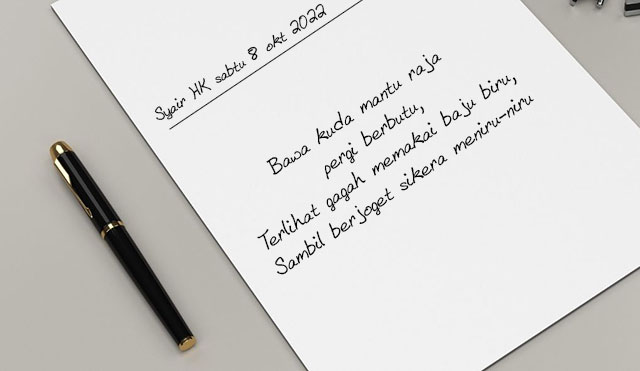 Syair HK sabtu 8 okt 2022
Bawa kuda mantu naja
pergi berbutu,
Terlihat gagah memakai baju biru,
Sambil berjoget sikera meniru-niru